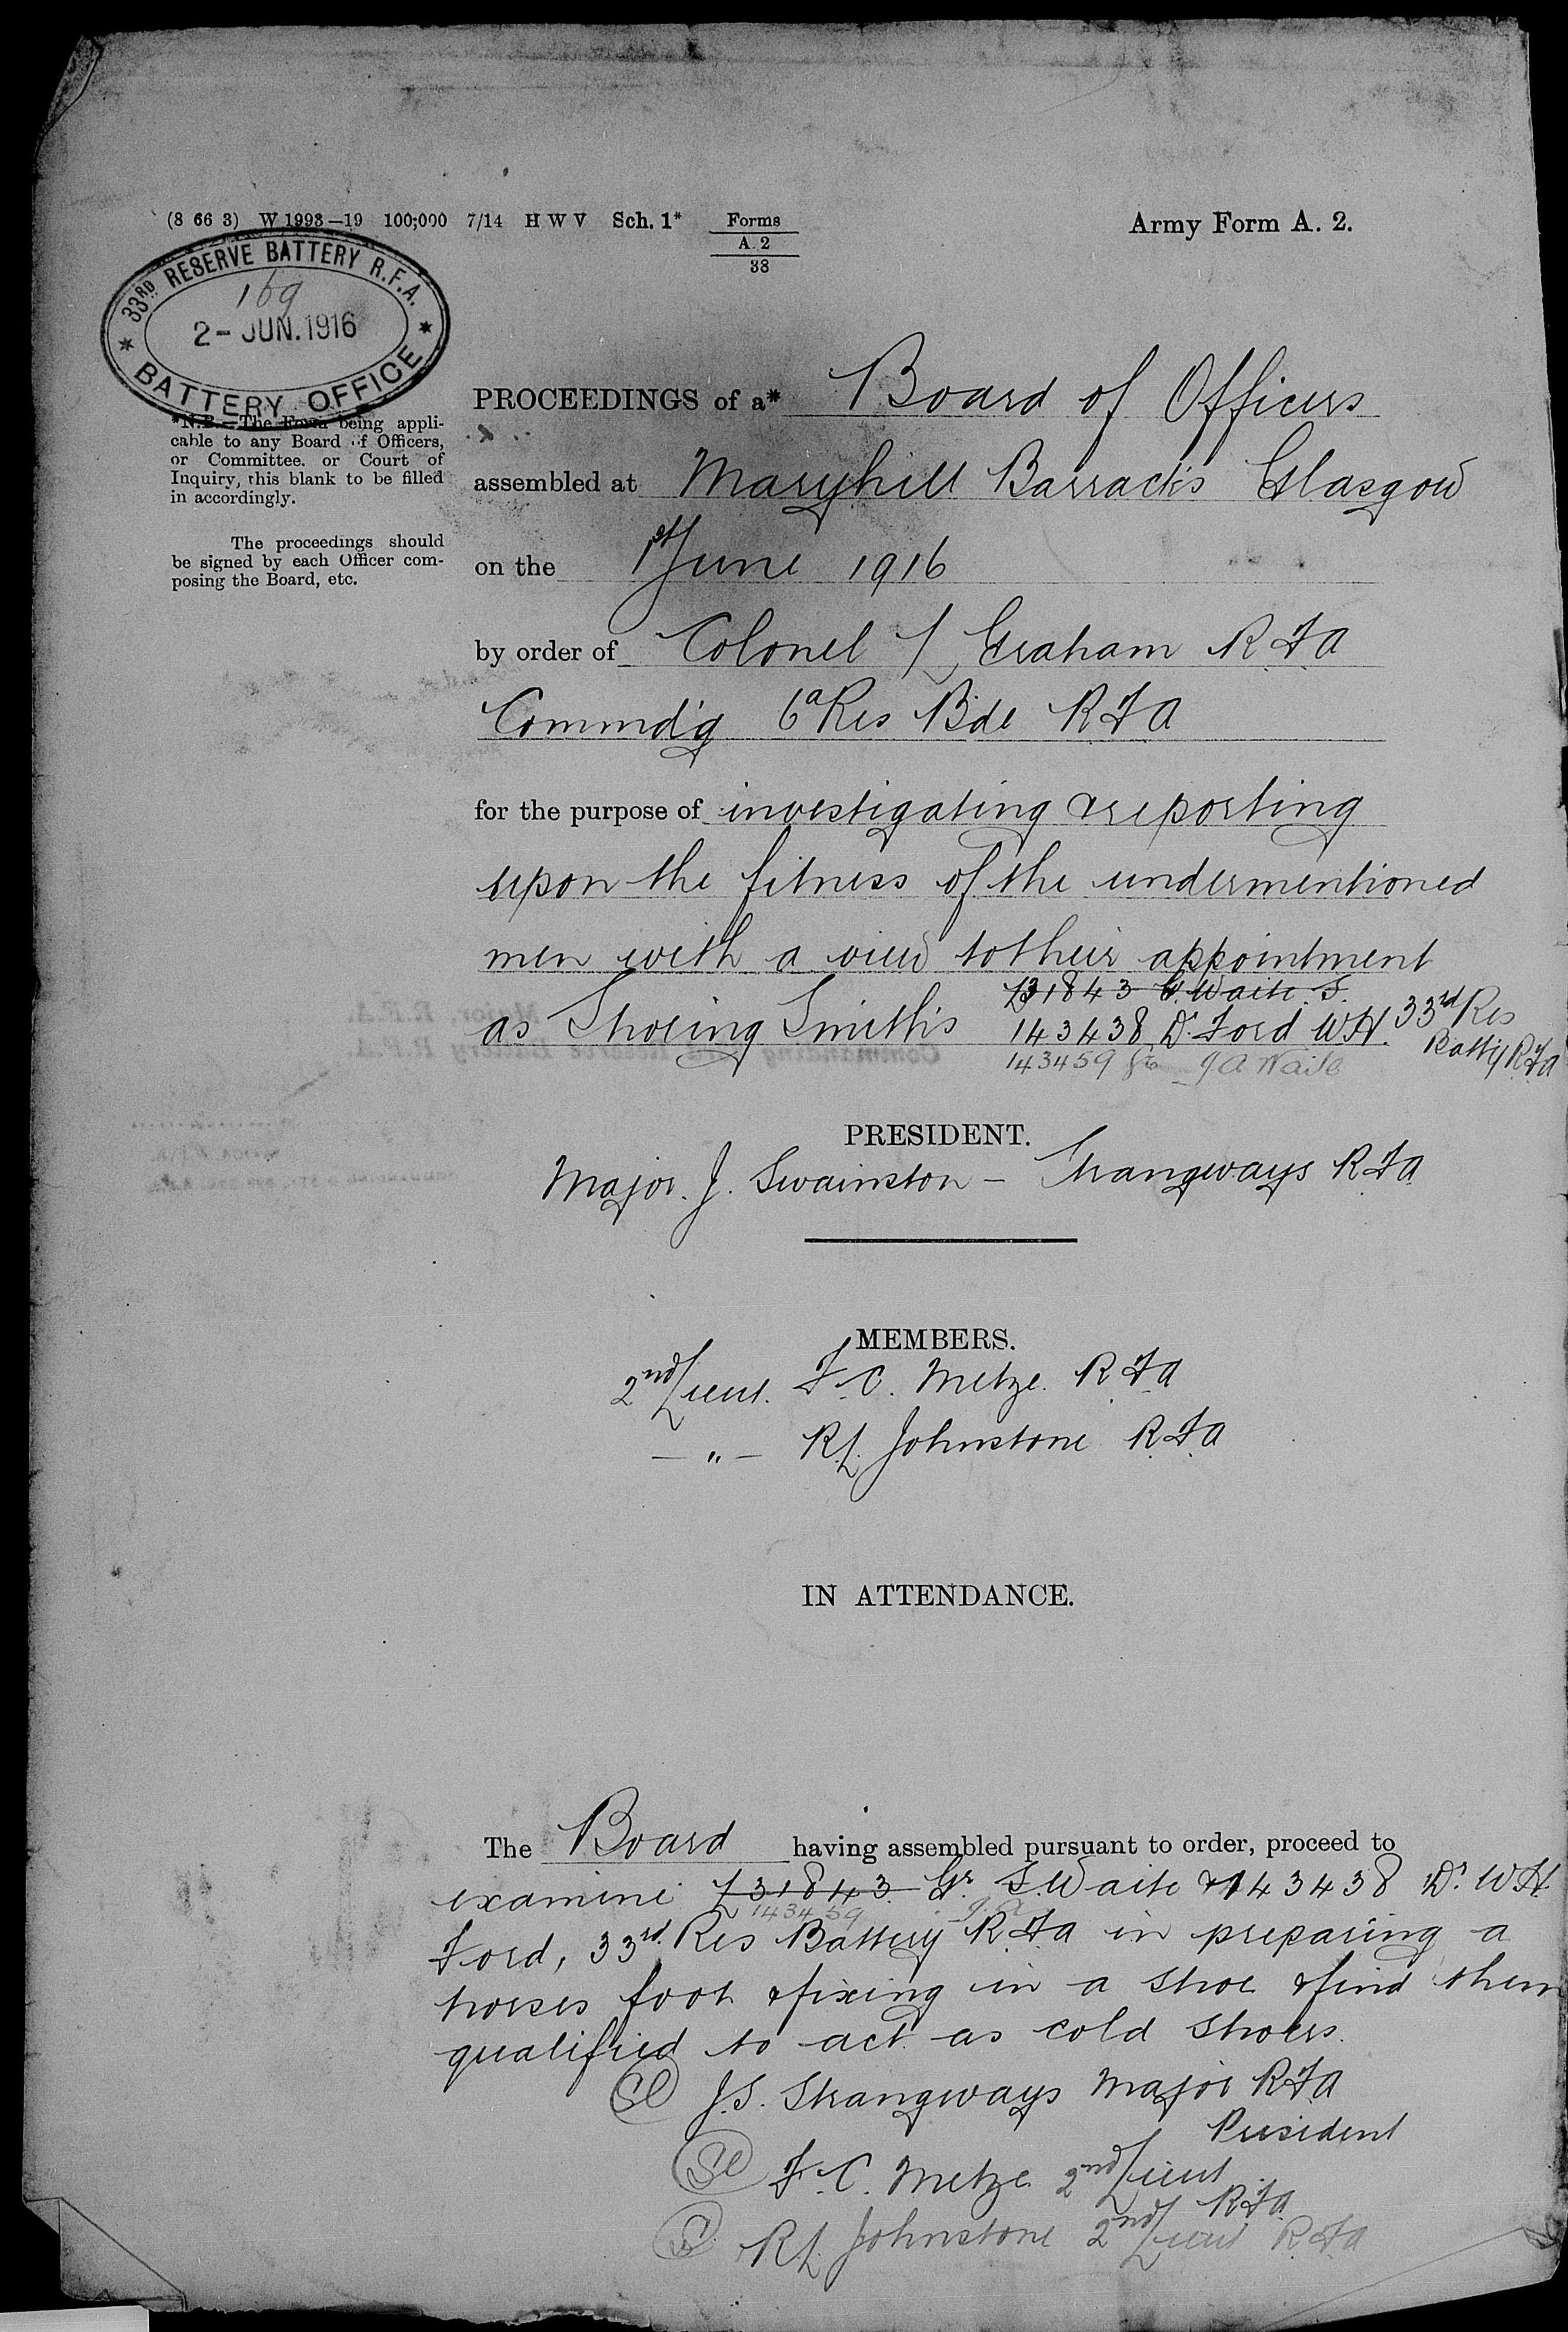 (8 66 3) W 1993—19 100,000 7/14 H W V Sch. 1* Forms
A. 2
38
Army Form A. 2.
33RD RESERVE BATTERY R.F.A.
169
2- JUN. 1916
BATTERY OFFICE
PROCEEDINGS of a* Board of Officers
*N.B.—The Form being appli-
cable to any Board of Officers,
or Committee, or Court of
Inquiry, this blank to be filled
in accordingly.
The proceedings should
be signed by each Officer com-
posing the Board, etc.
assembled at Maryhill Barracks Glasgow
on the 1st June 1916
by order of Colonel L Graham R F A
Commd'g 6a Res Bde R F A
for the purpose of investigating & reporting
upon the fitness of the undermentioned
men with a view to their appointment
L31843 Gr Waite. S.
as Shoeing Smiths 143438 Dr Ford W H. 33rd Res
Batty RFA
143459 Gr J A Waite
PRESIDENT.
Major. J. Swainston - Strangways R F A
MEMBERS.
2nd Lieut. F. C. Metze. R F A
— " — R L Johnstone R. F. A
IN ATTENDANCE.
The Board having assembled pursuant to order, proceed to
examine L31843 Gr. S. Waite & 143438 Dr. W H.
143459 J. A
Ford, 33rd. Res Battery R F A in preparing a
horses foot & fixing in a shoe & find them
qualified to act as cold shoers.
J. S. Strangways Major R F A
President
F. C. Metze 2nd Lieut
R F A
R L Johnstone 2nd Lieut R F A